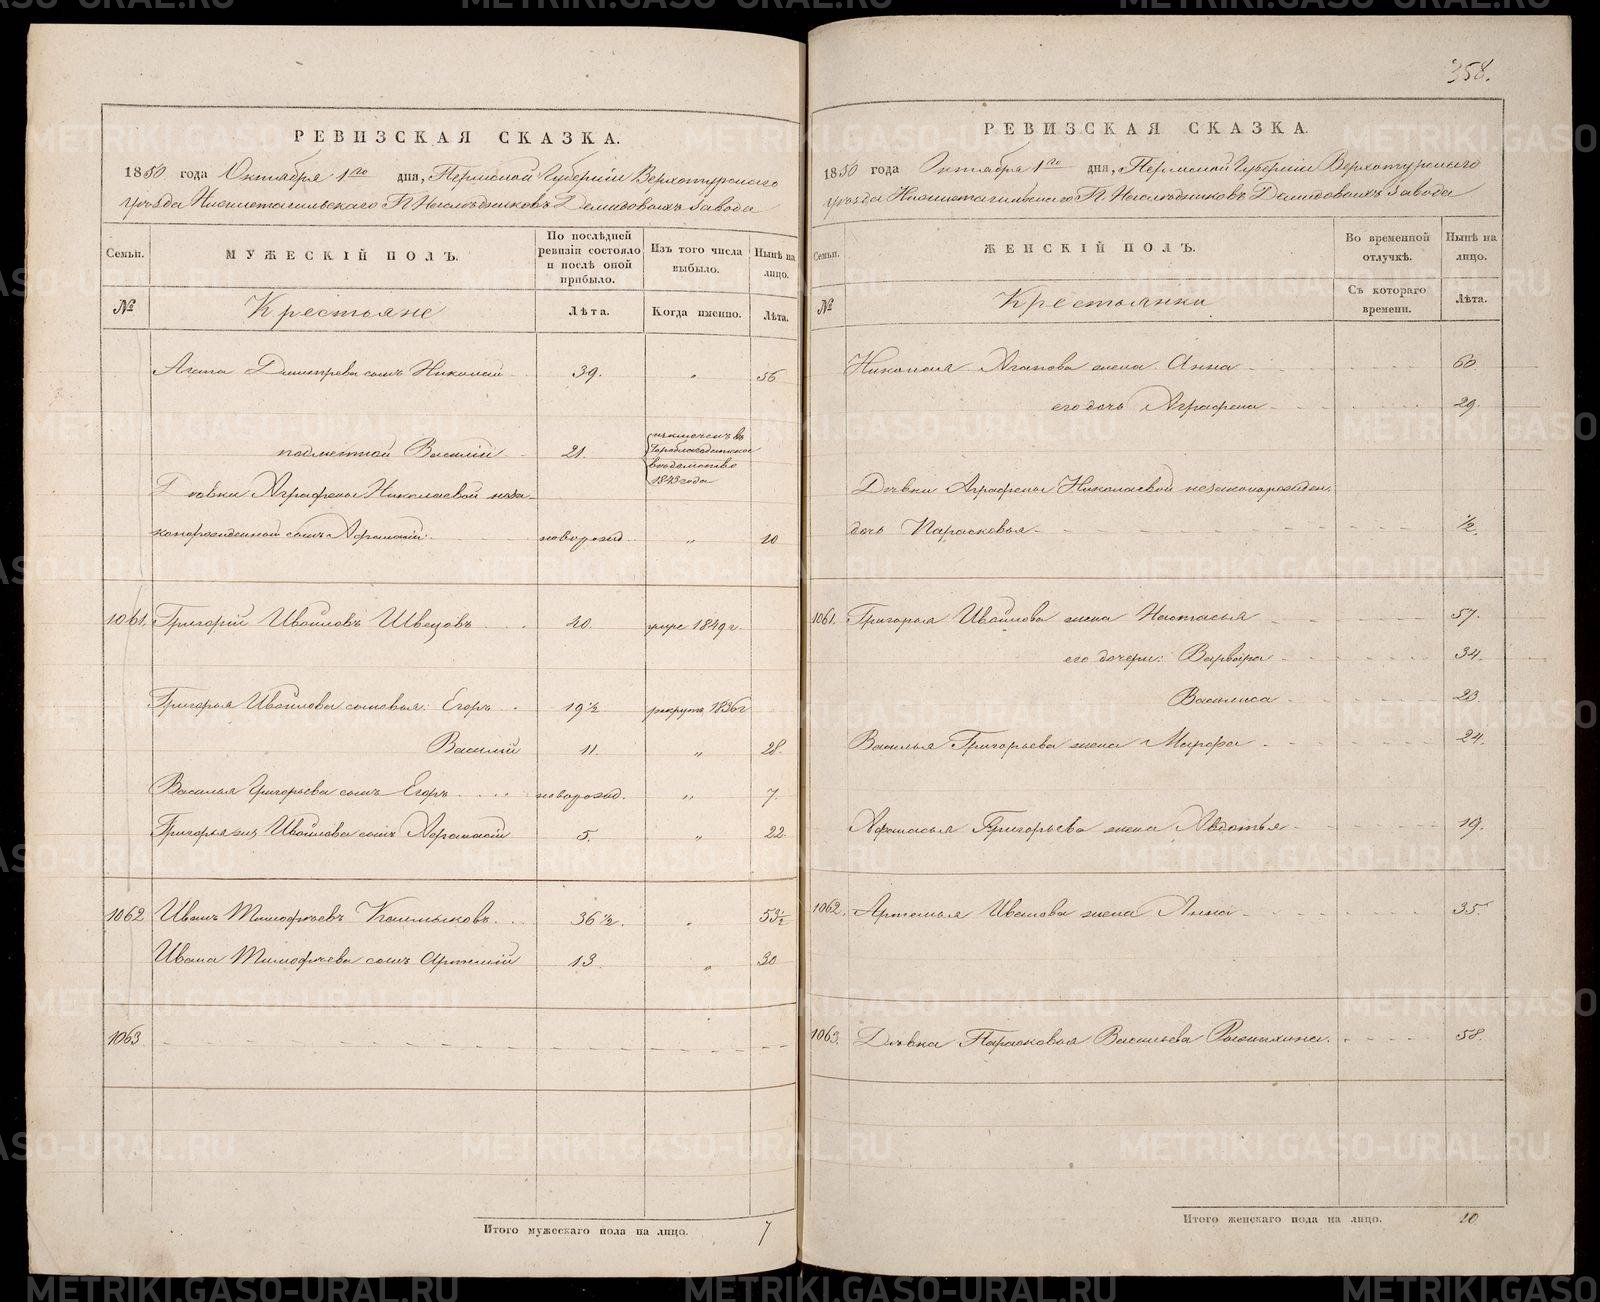 358.
РЕВИЗСКАЯ СКАЗКА.
1850 года Октября 1го дня, Пермской Губерніи Верхотурскаго
уѣзда Нижнетагильскаго Г.г. Наслѣдниковъ Демидовыхъ завода
Семьи. МУЖЕСКІЙ ПОЛЪ. По послѣдней ревизіи состояло и послѣ оной прибыло. Изъ того числа выбыло. Нынѣ на лицо.
№ Крестьяне Лѣта. Когда именно. Лѣта.
Агапа Дмитрева сынъ Николай 39. „ 56
подметной Василій 21. исключенъ въ
вѣдомство
1843 года
Дѣвки Аграфены Николаевой неза-
коннорожденной сынъ Афанасій новорожд. „ 10
1061. Григорій Ивановъ Швецовъ 40. умре 1849 г.
Григорья Иванова сыновья: Егоръ 19½ рекрутъ 1836 г
Василій 11. „ 28.
Василья Григорьева сынъ Егоръ новорожд. „ 7.
Григорья Иванова сынъ Афанасій 5. „ 22.
1062 Иванъ Тимофѣевъ Калмыковъ 36½. „ 53½
Ивана Тимофѣева сынъ Артемій 13 „ 30
1063
Итого мужескаго пола на лицо. 7
РЕВИЗСКАЯ СКАЗКА.
1850 года Октября 1го дня, Пермской Губерніи Верхотурскаго
уѣзда Нижнетагильскаго Г.г. Наслѣдниковъ Демидовыхъ завода
Семьи. ЖЕНСКІЙ ПОЛЪ. Во временной отлучкѣ. Нынѣ на лицо.
№ Крестьянки Съ котораго времени. Лѣта.
Николая Агапова жена Анна 60
его дочь Аграфена 29.
Дѣвки Аграфены Николаевой незаконнорожден.
дочь Парасковья ½.
1061. Григорья Иванова жена Настасья 57.
его дочери: Варвара 34.
Василиса 23.
Василья Григорьева жена Марфа 24.
Афанасья Григорьева жена Авдотья 19.
1062. Артемья Иванова жена Анна 35.
1063. Дѣвка Парасковья Васильева 58.
Итого женскаго пола на лицо. 10
METRIKI.GASO-URAL.RU